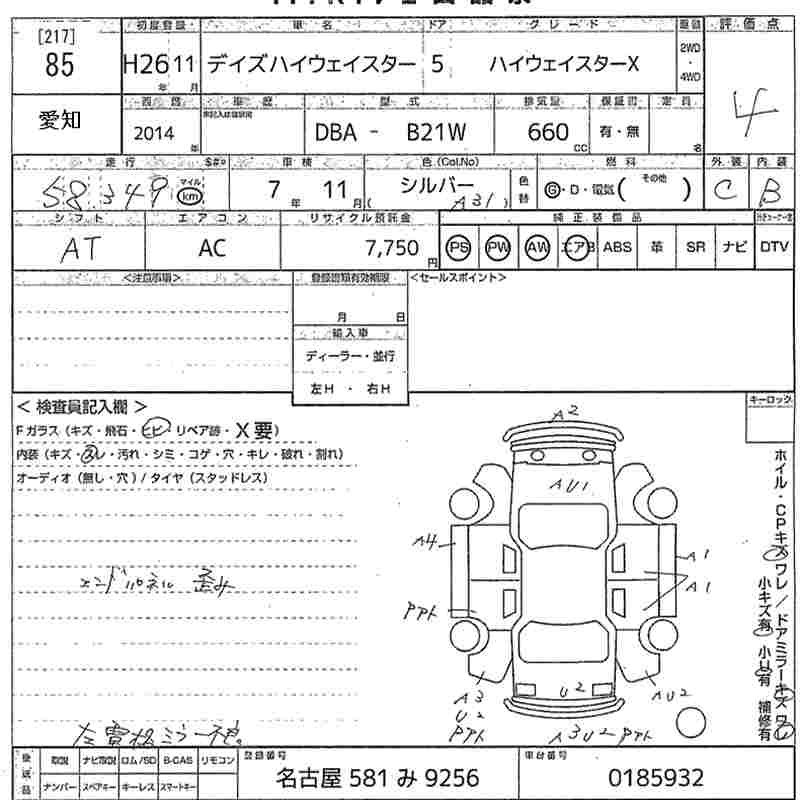 [217]
85
初度登録 車名 ドア グレード 駆動 評価点
H26 11 年 月 デイズハイウェイスター 5 ハイウェイスターX 2WD・4WD
4
愛知
西暦 車歴 型式 排気量 保証書 定員
2014 年 DBA - B21W 660 CC 有・無 名
走行 車検 色(Col.No) 燃料 外装 内装
58349 マイル km 7 年 11 月 シルバー (A31) 色替 G・D・電気( その他 ) C B
シフト エアコン リサイクル預託金 純正装備品
AT AC 7,750 円 PS PW AW エアB ABS 革 SR ナビ DTV
<注意事項> 登録書類有効期限 <セールスポイント>
月 日
輸入車
ディーラー・並行
左H ・ 右H
< 検査員記入欄 > キーロック
Fガラス(キズ・飛石・ヒビ リペア跡・X要)
内装(キズ・スレ・汚れ・シミ・コゲ・穴・キレ・破れ・割れ)
オーディオ(無し・穴)/タイヤ(スタッドレス)
A2
AU1
A4
A1
A1
PPト
A3
U2
PPト
U2
AU2
A3U2 PPト
歪み
左電格ミラー不良
ホイル・CPキズ ワレ/ドアミラーキズ ワレ
小キズ有 小凹有 補修有
後送品 取説 ナビ取説 ロム/SD B-CAS リモコン 登録番号 車台番号
ナンバー スペアキー キーレス スマートキー 名古屋 581 み 9256 0185932